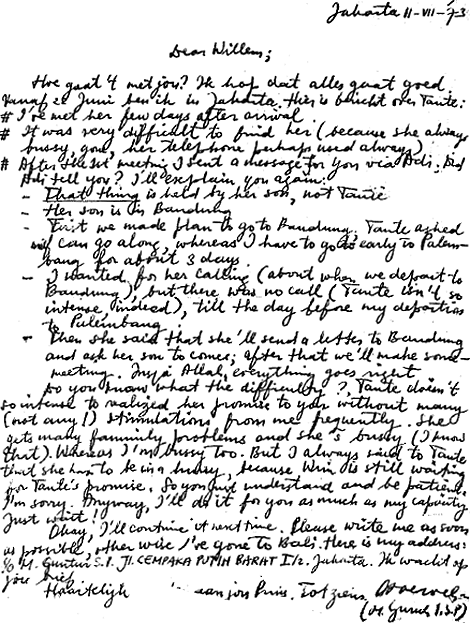 Jakarta 11-VII-'73
Dear Willem;
Hoe gaat 't met jou? Ik hop dat alles gaat goed.
Vanaf 22 Juni ben ik in Jakarta. Hier is bericht over Tante:
# I've met her few days after arrival.
# It was very difficult to find her (because she always
bussy, you, her telephone perhaps used always)
# After the 1st meeting I sent a message for you via Adi. Did
Adi tell you? I'll explain you again:
- That thing is held by her son, not Tante
- Her son is in Bandung
- First we made plan to go to Bandung. Tante asked
if can go along, whereas I have to go early to Palem-
bang for about 3 days.
- I wanted for her calling (about when we depart to
Bandung), but there was no call (Tante isn't so
intense, indeed), till the day before my departion
to Palembang.
- Then she said that she'll send a letter to Bandung
and ask her son to come; after that we'll make some
meeting. Insja Allah, everything goes right
Do you know what the difficulty?, Tante doesn't
so intense to realized her promise to you without many
(not any!) stimulations from me frequently. She
gets many familily problems and she's bussy (I know
that). Whereas I'm bussy too. But I always said to Tante
that she has to be in a hurry, because Wim is still waiting
for Tante's promise. So you just understand and be patient.
I'm sorry. Anyway, I'll do it for you as much as my capacity
Just wait!
Okay, I'll continue at next time. Please write me as soon
as possible, other wise I've gone to Bali. Here is my address:
c/o M. Guntur S.P. Jl. CEMPAKA PUTIH BARAT I/2. Jakarta. Ik wacht op
jou brief.
Hartelijk van jou Tot ziens,
(M. S.P)